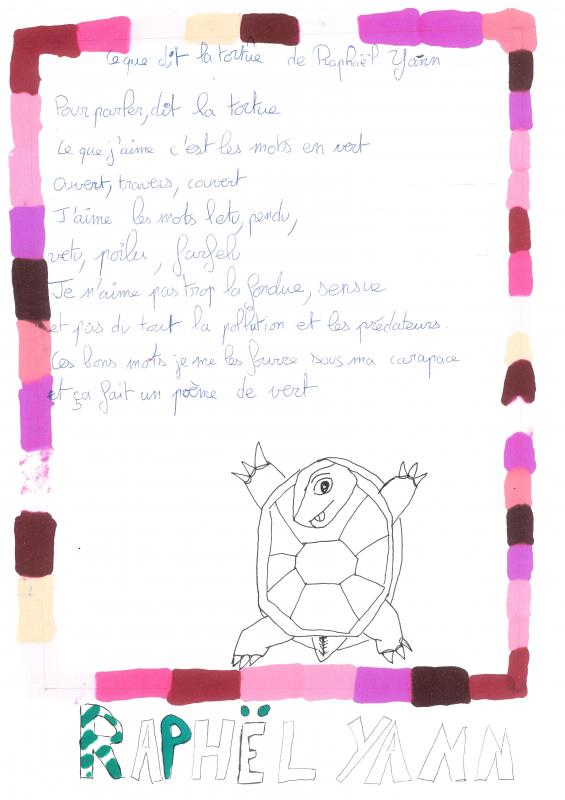 Ce que dit la tortue de Raphaël Yann
Pour parler, dit la tortue
Ce que j'aime c'est les mots en vert
Ouvert, travers, couvert
J'aime les mots letu, pendu,
vetu, poilu, farfelu
Je n'aime pas trop la fondue, sensue
et pas du tout la pollution et les prédateurs.
Ces bons mots je me les fourre sous ma carapace
et ça fait un poème de vert
RAPHËL YANN